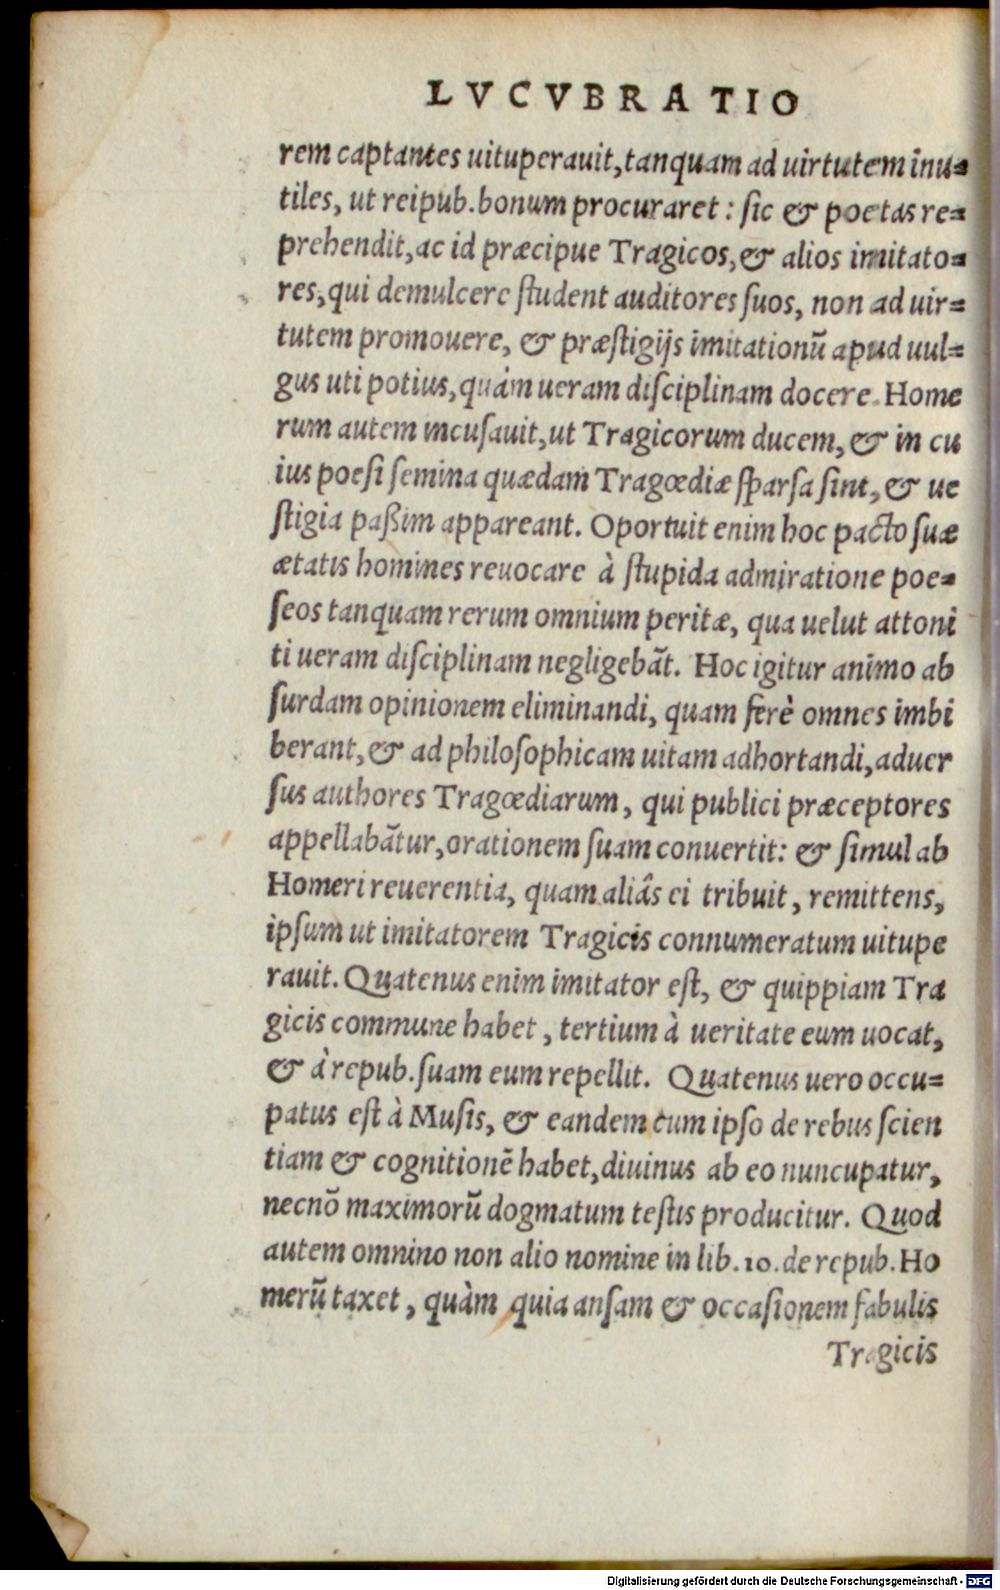 LVCVBRATIO
rem captantes uituperauit, tanquam ad uirtutem inu⸗
tiles, ut reipub. bonum procuraret : sic & poetas re⸗
prehendit, ac id præcipue Tragicos, & alios imitato⸗
res, qui demulcere student auditores suos, non ad uir⸗
tutem promouere, & præstigijs imitationũ apud uul⸗
gus uti potius, quàm ueram disciplinam docere. Home
rum autem incusauit, ut Tragicorum ducem, & in cu
ius poesi semina quædam Tragœdiæ sparsa sint, & ue
stigia paßim appareant. Oportuit enim hoc pacto suæ
ætatis homines reuocare à stupida admiratione poe⸗
seos tanquam rerum omnium peritæ, qua uelut attoni
ti ueram disciplinam negligebãt. Hoc igitur animo ab
surdam opinionem eliminandi, quam ferè omnes imbi
berant, & ad philosophicam uitam adhortandi, aduer
sus authores Tragœdiarum, qui publici præceptores
appellabãtur, orationem suam conuertit: & simul ab
Homeri reuerentia, quam aliâs ei tribuit, remittens,
ipsum ut imitatorem Tragicis connumeratum uitupe
rauit. Quatenus enim imitator est, & quippiam Tra
gicis commune habet, tertium à ueritate eum uocat,
& à repub. suam eum repellit. Quatenus uero occu⸗
patus est à Musis, & eandem cum ipso de rebus scien
tiam & cognitionẽ habet, diuinus ab eo nuncupatur,
necnõ maximorũ dogmatum testis producitur. Quod
autem omnino non alio nomine in lib. 10. de repub. Ho
merũ taxet, quàm quia ansam & occasionem fabulis
Tragicis
Digitalisierung gefördert durch die Deutsche Forschungsgemeinschaft - DFG